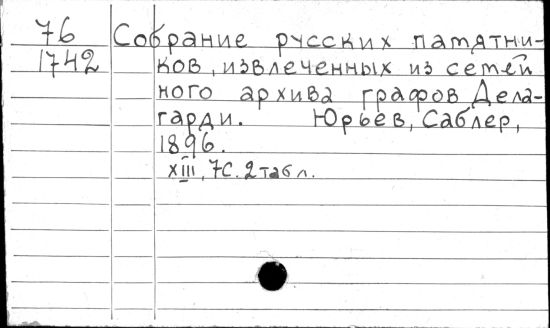 76 Собрание русских памятни-
1742 ков, извлеченных из семей
ного архива графов Дела-
гарди. Юрьев, Саблер,
1896.
XIII, 7с. 2 табл.